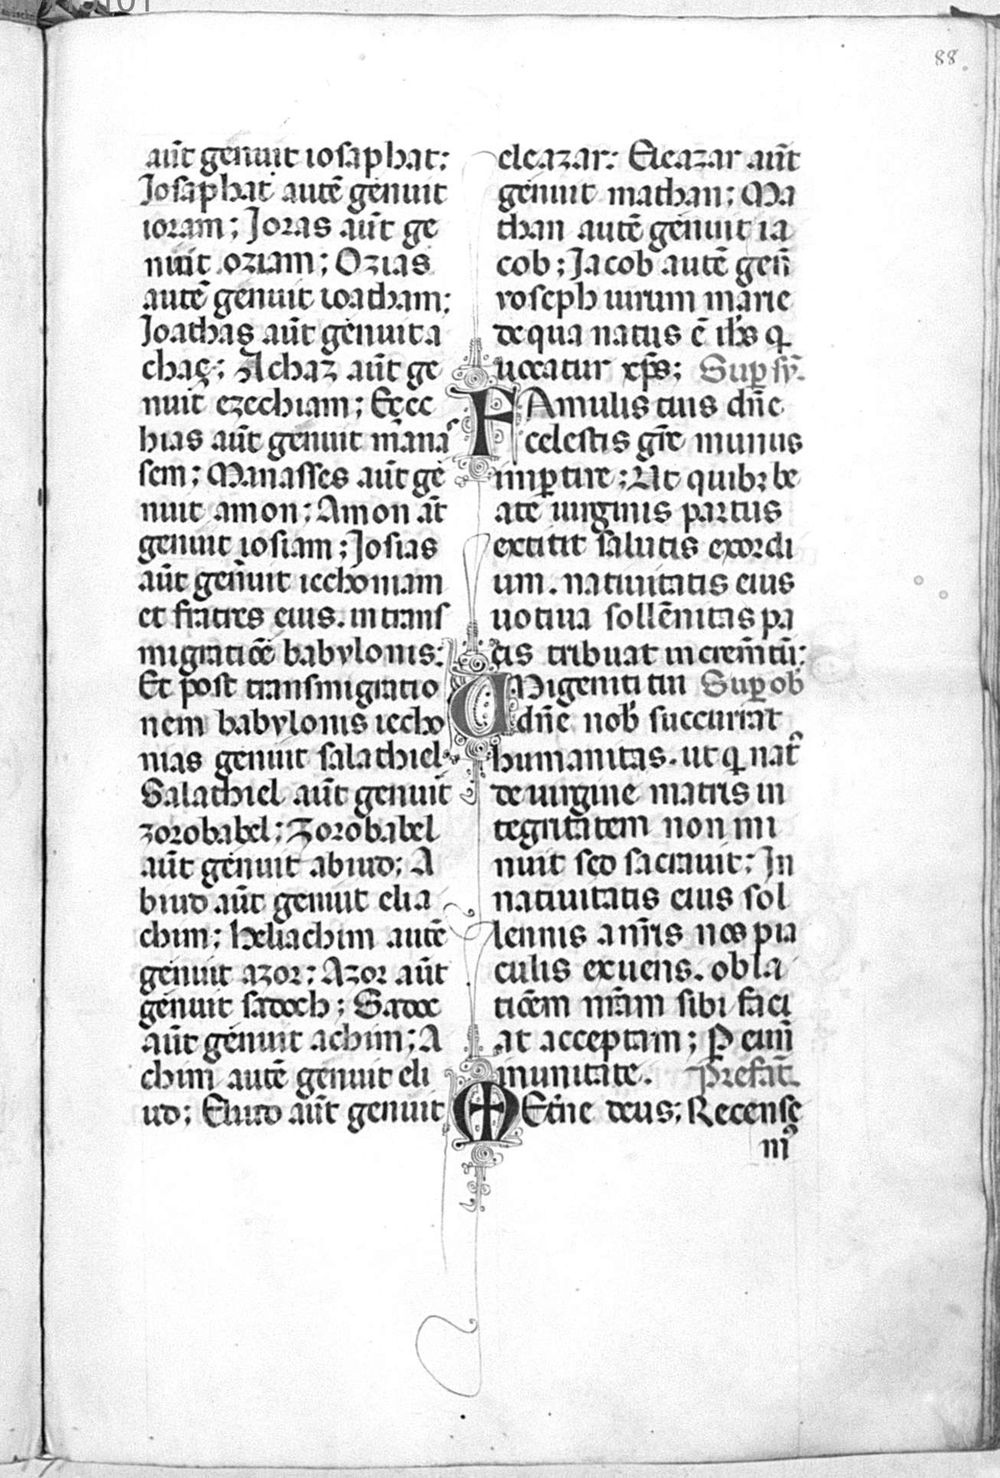 88
aūt genuit iosaphat;
Josaphat autē genuit
ioram; Joras aūt ge
nuit oziam; Ozias
autē genuit ioatham;
Joathas aūt genuit a
chaz; Achaz aūt ge
nuit ezechiam; Ezec
hias aūt genuit mana
sem; Manasses aūt ge
nuit amon; Amon āt
genuit iosiam; Josias
aūt genuit iechoniam
et fratres eius. in trans
migratiōe babylonis;
Et post transmigratio
nem babylonis iecho
nias genuit salathiel.
Salathiel aūt genuit
zorobabel; Zorobabel
aūt genuit abiud; A
biud aūt genuit elia
chim; heliachim autē
genuit azor; Azor aūt
genuit sadoch; Sadoc
aūt genuit achim; A
chim autē genuit eli
ud; Eliud aūt genuit
eleazar; Eleazar aūt
genuit mathan; Ma
than autē genuit ia
cob; Jacob autē gen̄
yoseph uirum marie
de qua natus ē ihs̄ q
uocatur xp̄s; Sup sy.
FAmulis tuis dn̄e
celestis grē munus
imp̄tire; Ut quib; be
ate uirginis partus
extitit salutis exordi
um. natiuitatis eius
uotiua sollēnitas pa
cis tribuat incremtū;
UNigeniti tui Sup ob
dn̄e nob succurrat
humanitas. ut q nat
de uirgine matris in
tegritatem non mi
nuit sed sacrauit; In
natiuitatis eius sol
lennis a nr̄is nos pia
culis exuens. obla
tiōem nr̄am sibi faci
at acceptam; P eum̄
inunitate. Prefat̄.
MEt̄ne deus; Recense